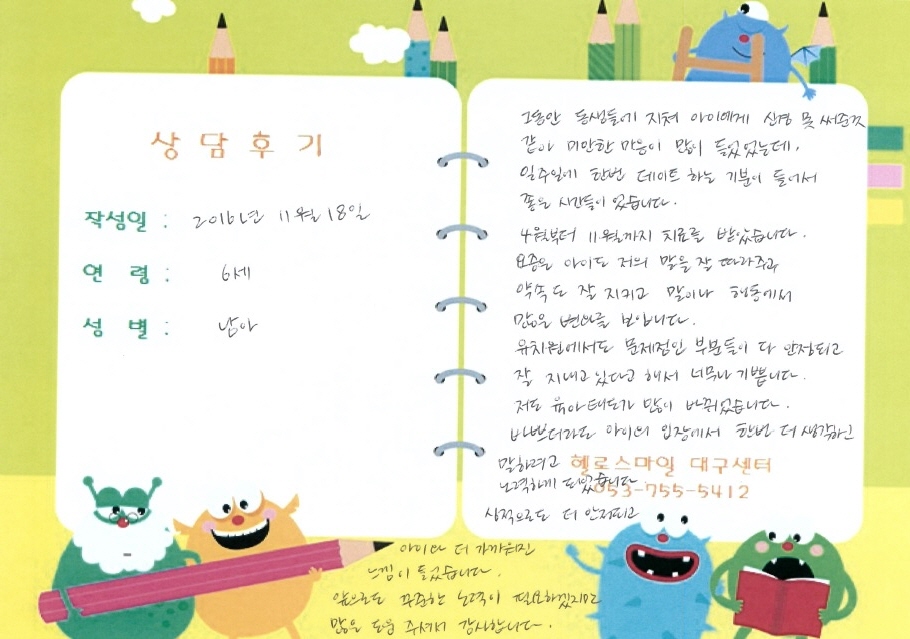 상담후기
작성일 : 2016년 11월 18일
연 령 : 6세
성 별 : 남아
그동안 동생들에 지쳐 아이에게 신경 못 써준것
같아 미안한 마음이 많이 들었었는데,
일주일에 한번 데이트 하는 기분이 들어서
좋은 시간들이 있습니다.
4월부터 11월까지 치료를 받았습니다.
요즘은 아이도 저의 말을 잘 따라주고
약속도 잘 지키고 말이나 행동에서
많은 변화를 보입니다.
유치원에서도 문제점인 부분들이 다 안정되고
잘 지내고 있다고 해서 너무나 기쁩니다.
저도 육아태도가 많이 바뀌었습니다.
바쁘더라도 아이의 입장에서 한번 더 생각하고
말하려고
헬로스마일 대구센터
노력하게 되었습니다
053-755-5412
더 안정되고
아이와 더 가까워진
느낌이 들었습니다.
앞으로도 꾸준한 노력이 필요하겠지만
많은 도움 주셔서 감사합니다.